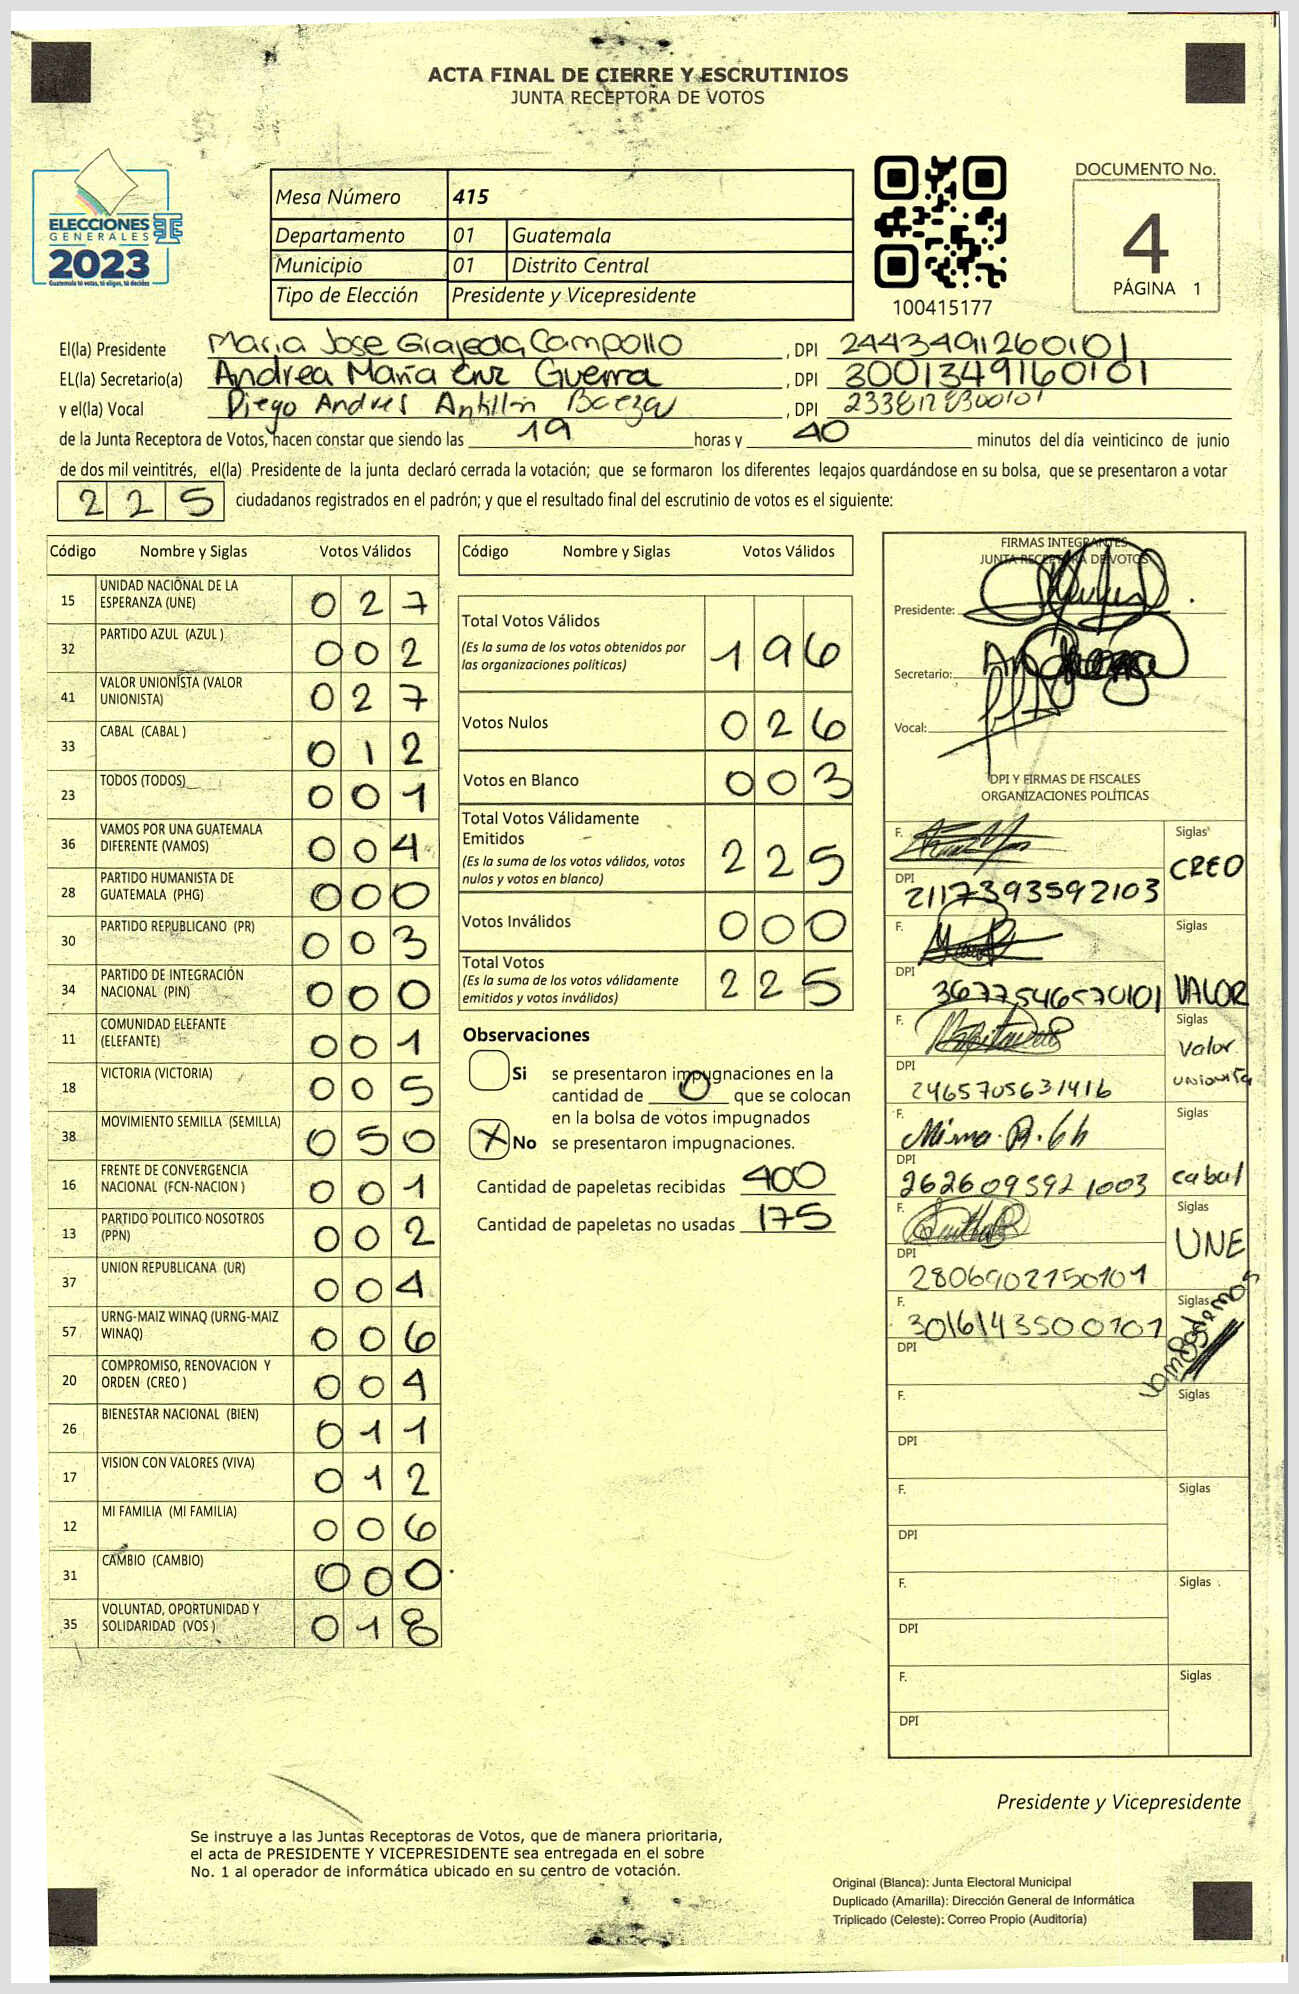 ACTA FINAL DE CIERRE Y ESCRUTINIOS
JUNTA RECEPTORA DE VOTOS
ELECCIONES
GENERALES
2023
Guatemala tú votas, tú eliges, tú decides
Mesa Número 415
Departamento 01 Guatemala
Municipio 01 Distrito Central
Tipo de Elección Presidente y Vicepresidente
100415177
DOCUMENTO No.
4
PÁGINA 1
El(la) Presidente Maria Jose Grajeda Campollo , DPI 2443491260101
EL(la) Secretario(a) Andrea Maria Cruz Guerra , DPI 3001349160101
y el(la) Vocal Diego Andres Antillón Baeza , DPI 2338128300101
de la Junta Receptora de Votos, hacen constar que siendo las 19 horas y 40 minutos del día veinticinco de junio
de dos mil veintitrés, el(la) Presidente de la junta declaró cerrada la votación; que se formaron los diferentes legajos guardándose en su bolsa, que se presentaron a votar
225 ciudadanos registrados en el padrón; y que el resultado final del escrutinio de votos es el siguiente:
Código Nombre y Siglas Votos Válidos
15 UNIDAD NACIONAL DE LA ESPERANZA (UNE) 027
32 PARTIDO AZUL (AZUL ) 002
41 VALOR UNIONISTA (VALOR UNIONISTA) 027
33 CABAL (CABAL ) 012
23 TODOS (TODOS) 001
36 VAMOS POR UNA GUATEMALA DIFERENTE (VAMOS) 004
28 PARTIDO HUMANISTA DE GUATEMALA (PHG) 000
30 PARTIDO REPUBLICANO (PR) 003
34 PARTIDO DE INTEGRACIÓN NACIONAL (PIN) 000
11 COMUNIDAD ELEFANTE (ELEFANTE) 001
18 VICTORIA (VICTORIA) 005
38 MOVIMIENTO SEMILLA (SEMILLA) 050
16 FRENTE DE CONVERGENCIA NACIONAL (FCN-NACION ) 001
13 PARTIDO POLITICO NOSOTROS (PPN) 002
37 UNION REPUBLICANA (UR) 004
57 URNG-MAIZ WINAQ (URNG-MAIZ WINAQ) 006
20 COMPROMISO, RENOVACION Y ORDEN (CREO ) 004
26 BIENESTAR NACIONAL (BIEN) 011
17 VISION CON VALORES (VIVA) 012
12 MI FAMILIA (MI FAMILIA) 006
31 CAMBIO (CAMBIO) 000
35 VOLUNTAD, OPORTUNIDAD Y SOLIDARIDAD (VOS ) 018
Código Nombre y Siglas Votos Válidos
Total Votos Válidos 196
(Es la suma de los votos obtenidos por
las organizaciones políticas)
Votos Nulos 026
Votos en Blanco 003
Total Votos Válidamente
Emitidos 225
(Es la suma de los votos válidos, votos
nulos y votos en blanco)
Votos Inválidos 000
Total Votos 225
(Es la suma de los votos válidamente
emitidos y votos inválidos)
Observaciones
Si se presentaron impugnaciones en la
cantidad de 0 que se colocan
en la bolsa de votos impugnados
X No se presentaron impugnaciones.
Cantidad de papeletas recibidas 400
Cantidad de papeletas no usadas 175
FIRMAS INTEGRANTES
JUNTA RECEPTORA DE VOTOS
Presidente:
Secretario:
Vocal:
DPI Y FIRMAS DE FISCALES
ORGANIZACIONES POLÍTICAS
F. Siglas CREO
DPI 2117393592103
F. Siglas VALOR
DPI 3677546570101
F. Siglas Valor unionista
DPI 2465705631416
F. Siglas cabal
DPI 2626095921003
F. Siglas UNE
DPI 2806902750101
F. 3016143500101 Siglas
DPI
F. Siglas
DPI
F. Siglas
DPI
F. Siglas
DPI
F. Siglas
DPI
Presidente y Vicepresidente
Se instruye a las Juntas Receptoras de Votos, que de manera prioritaria,
el acta de PRESIDENTE Y VICEPRESIDENTE sea entregada en el sobre
No. 1 al operador de informática ubicado en su centro de votación.
Original (Blanca): Junta Electoral Municipal
Duplicado (Amarilla): Dirección General de Informática
Triplicado (Celeste): Correo Propio (Auditoría)